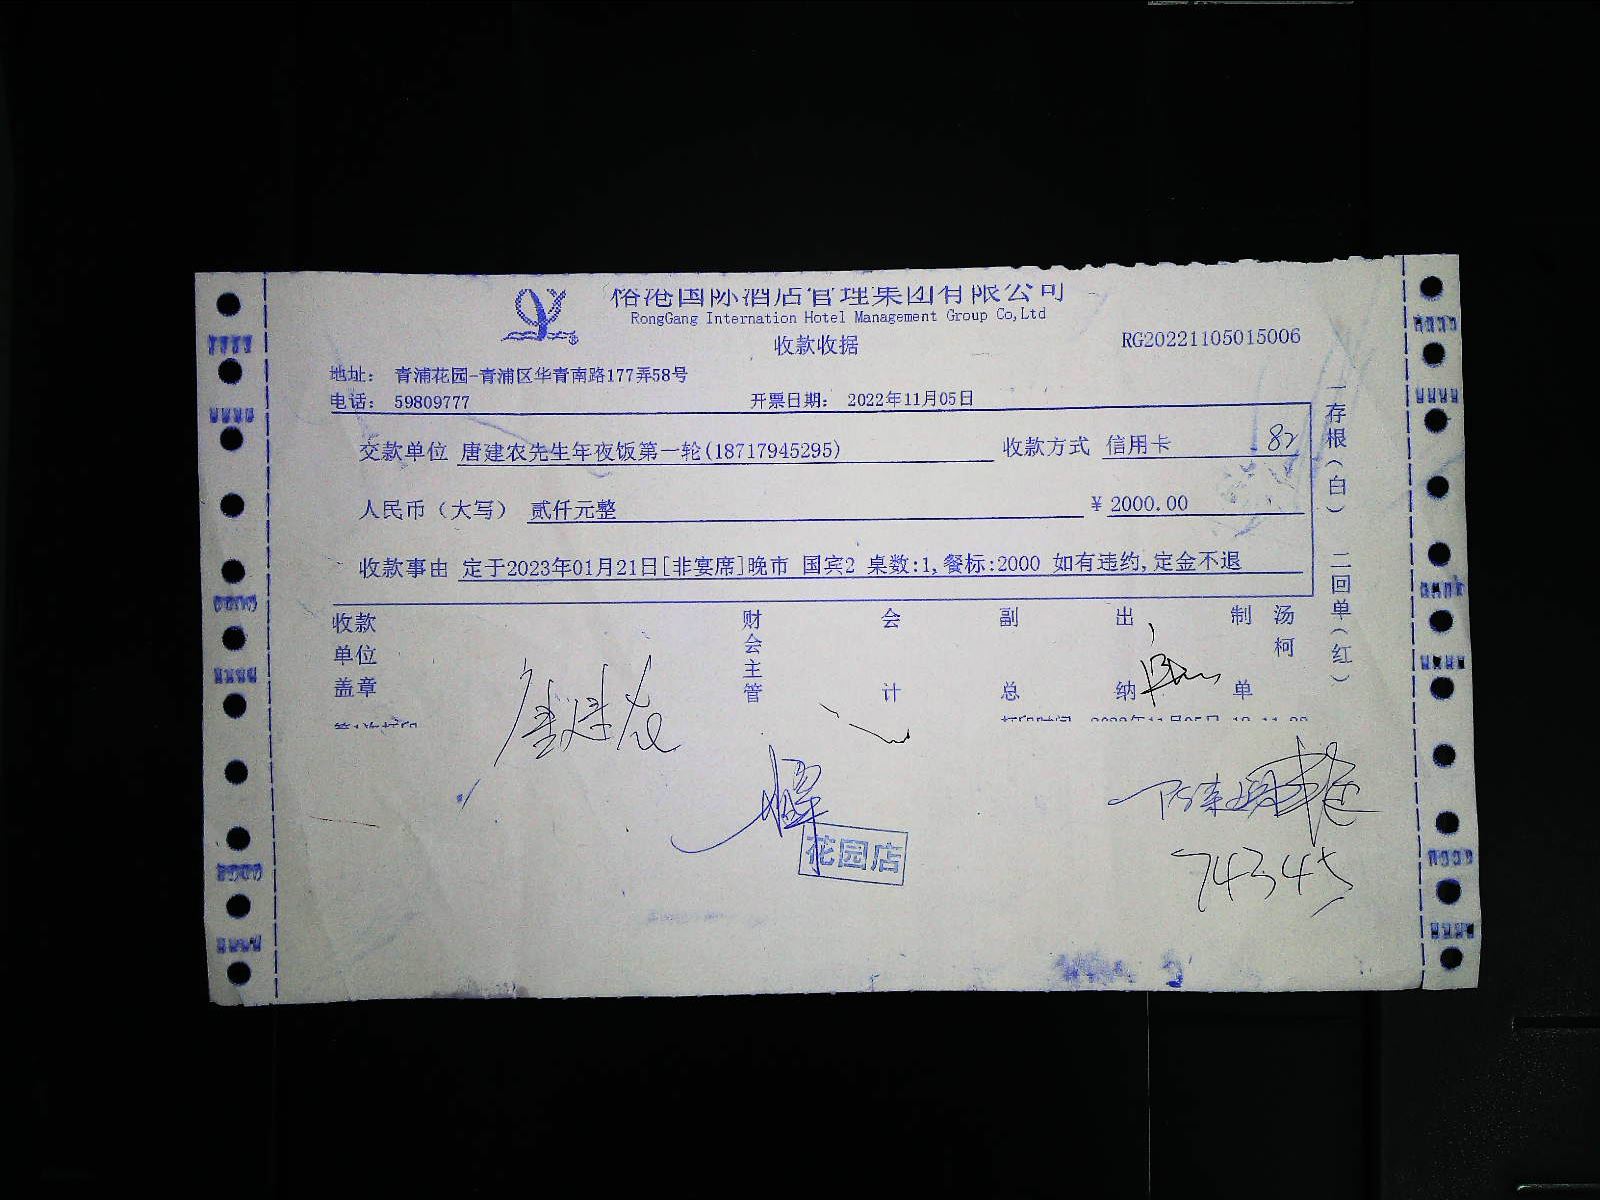 榕港国际酒店管理集团有限公司
RongGang Internation Hotel Management Group Co,Ltd
收款收据
RG20221105015006
地址： 青浦花园-青浦区华青南路177弄58号
电话： 59809777 开票日期： 2022年11月05日
交款单位 唐建农先生年夜饭第一轮(18717945295) 收款方式 信用卡 182
人民币（大写） 贰仟元整 ¥ 2000.00
收款事由 定于2023年01月21日[非宴席]晚市 国宾2 桌数:1,餐标:2000 如有违约,定金不退
一存根（白） 二回单（红）
收款单位盖章 财会主管 会计 副总 出纳 制单 汤柯
唐建农
花园店
74345